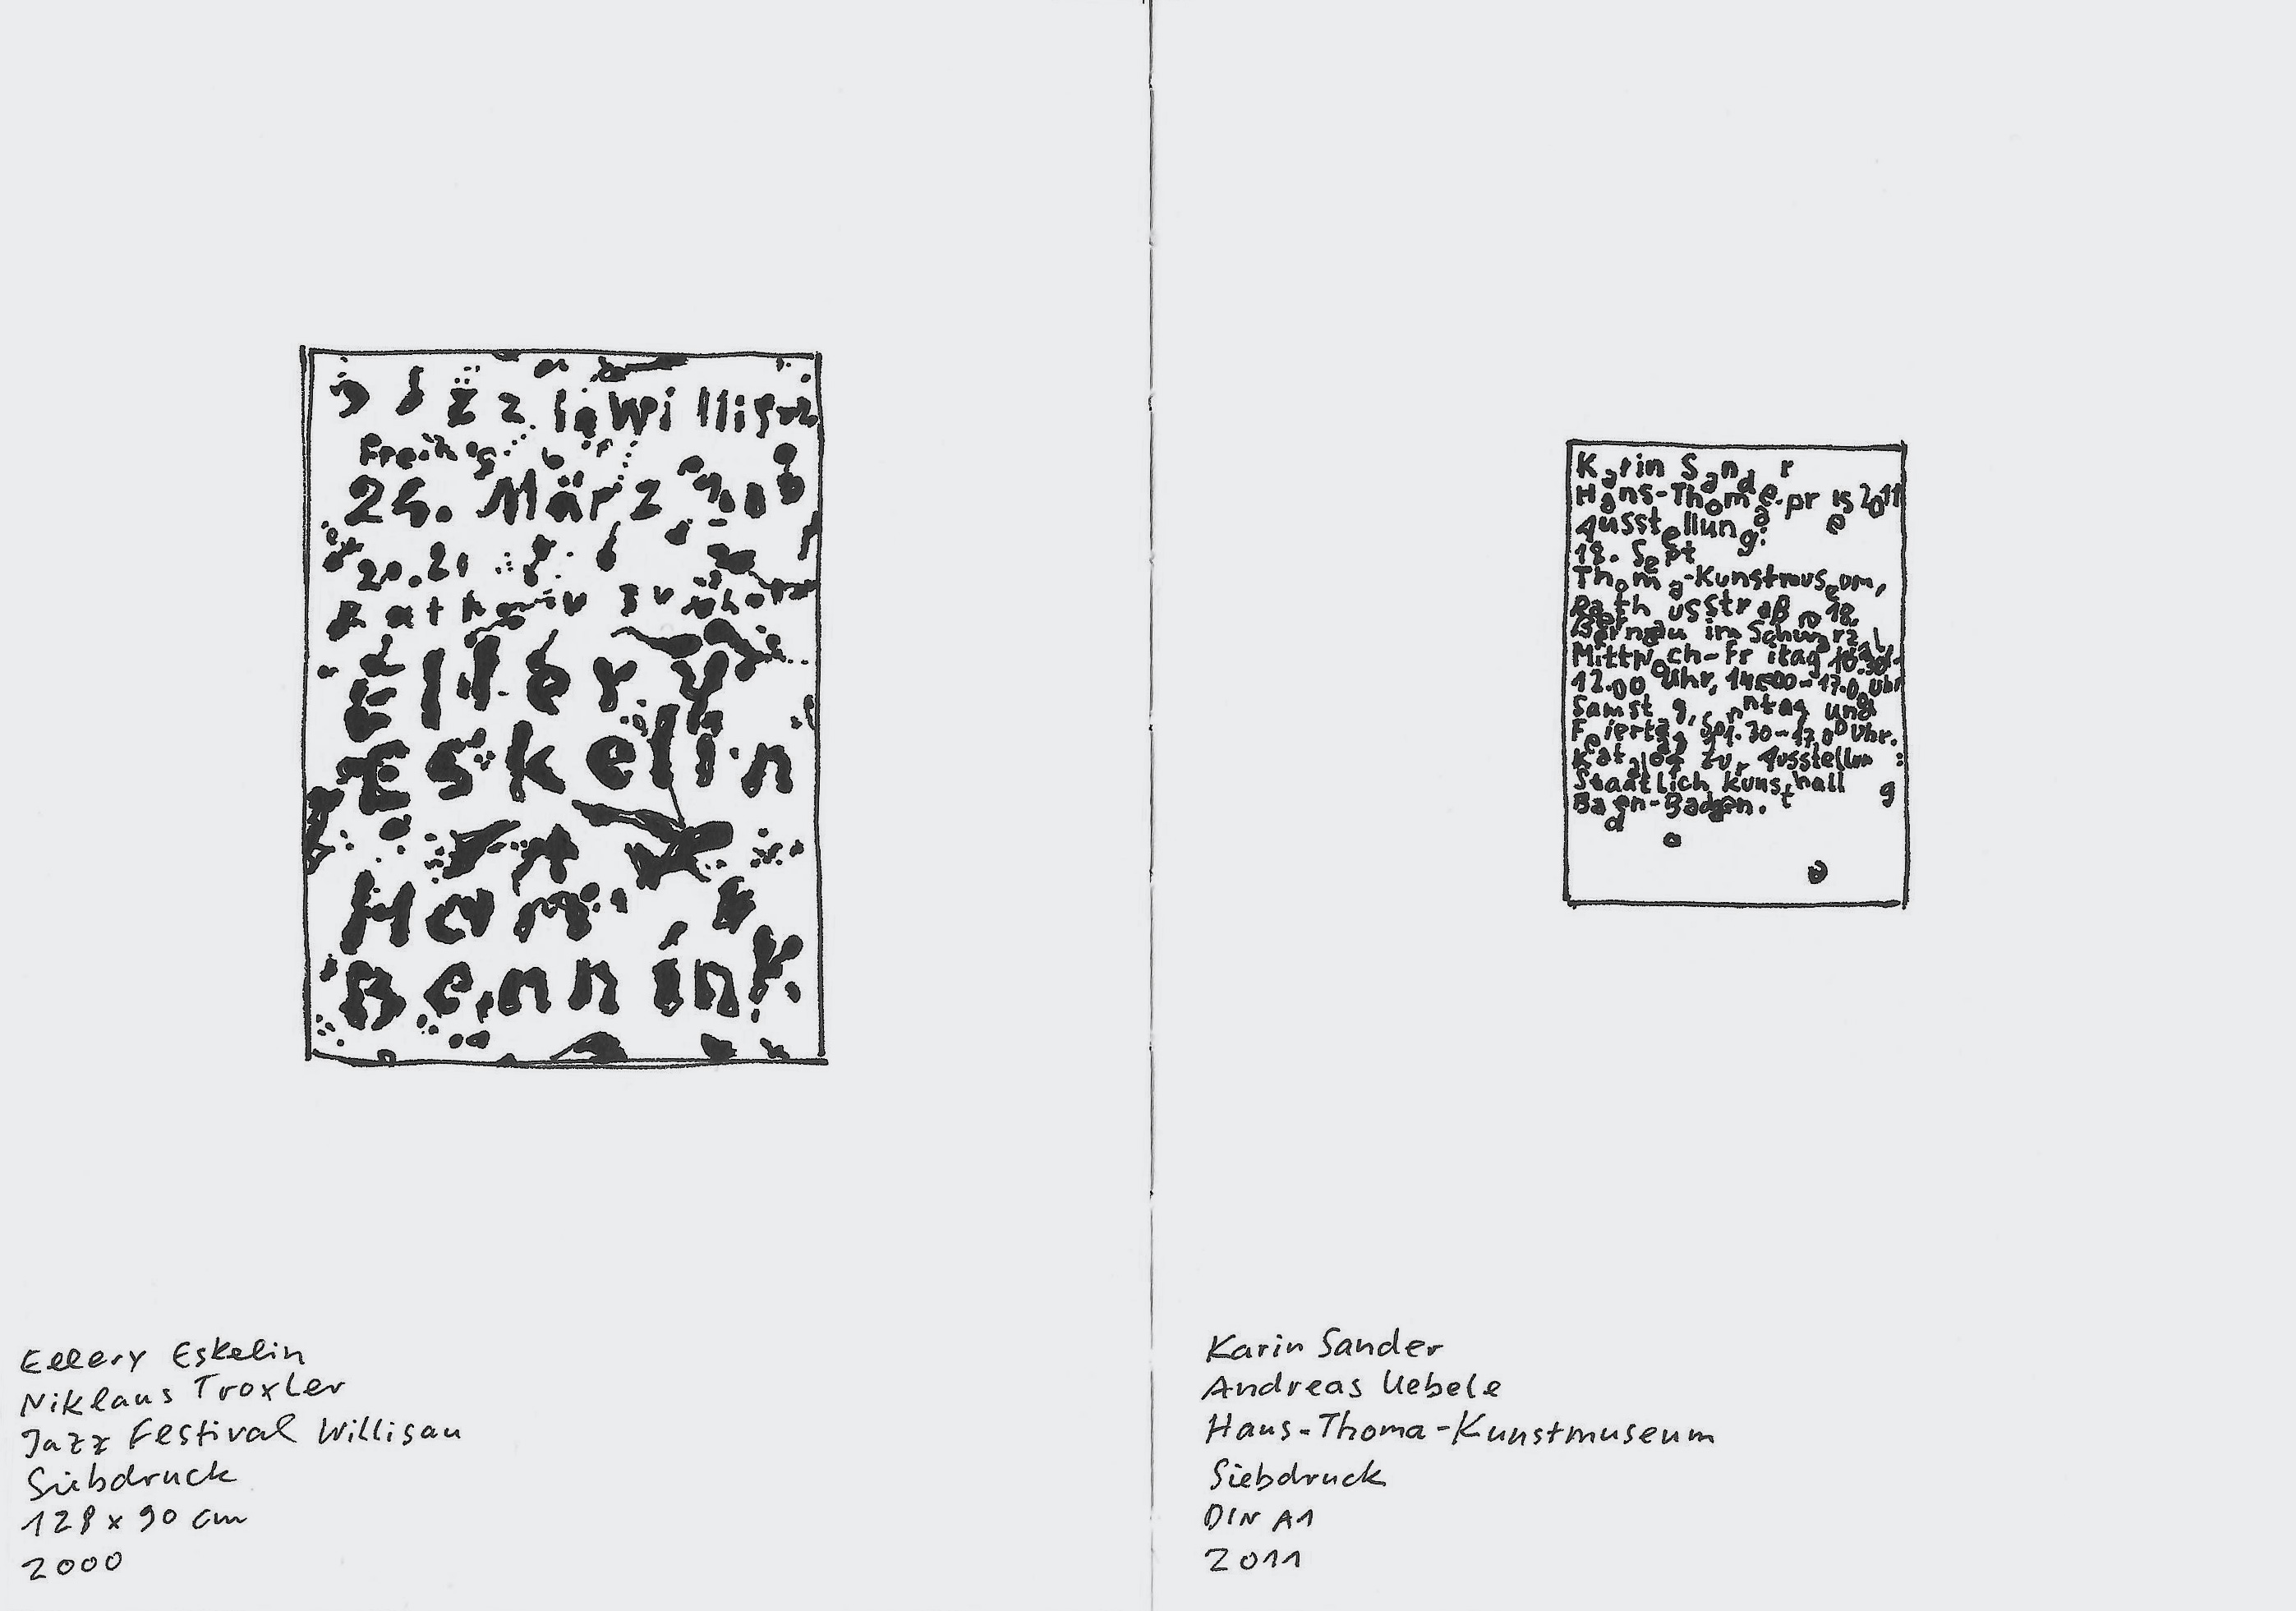 Jazz in Willisau
Freitag
24. März
Ellery
Eskelin
Han
Bennink
Karin Sander
Hans-Thoma-preis 2011
Ausstellung:
18. Sept
Thoma-Kunstmuseum,
Rathausstraße 18,
Bernau im Schwarzwald,
Mittwoch-Freitag 10.30-
12.00 Uhr, 14.00-17.00 Uhr
Samstag, Sonntag und
Feiertag 11.30-17.00 Uhr.
Katalog zur Ausstellung:
Staatliche Kunsthalle
Baden-Baden.
Ellery Eskelin
Niklaus Troxler
Jazz Festival Willisau
Siebdruck
128 x 90 cm
2000
Karin Sander
Andreas Uebele
Hans-Thoma-Kunstmuseum
Siebdruck
DIN A1
2011